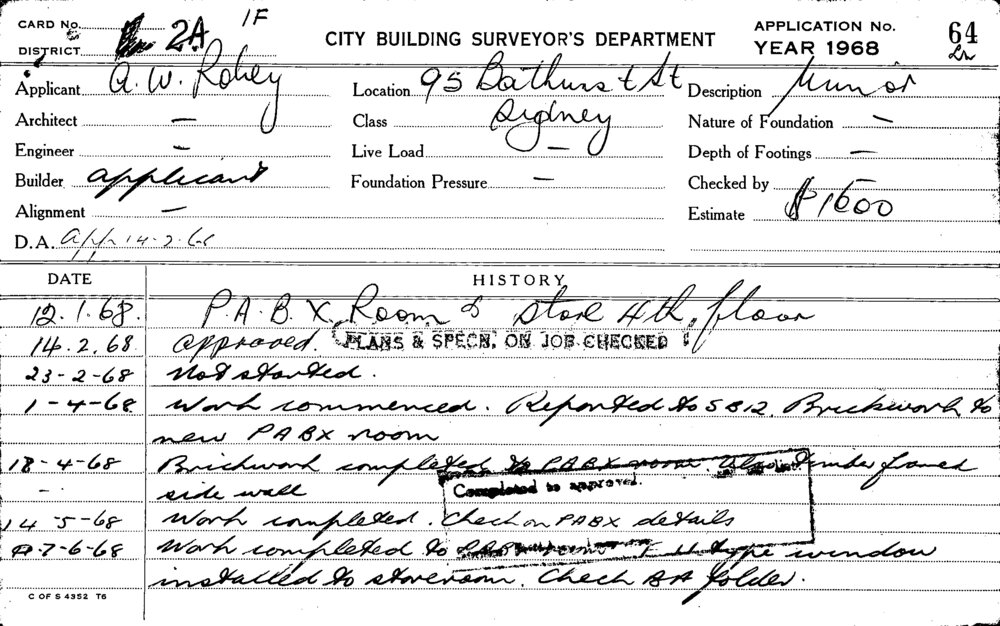 CARD No. 2A 1F
DISTRICT
CITY BUILDING SURVEYOR'S DEPARTMENT
APPLICATION No. 64
YEAR 1968
Applicant A. W. Robey
Location 95 Bathurst St
Description Minor
Architect —
Class Sydney
Nature of Foundation —
Engineer —
Live Load —
Depth of Footings —
Builder applicant
Foundation Pressure —
Checked by
Alignment —
Estimate $1600
D.A. App 14-2-68
DATE HISTORY
12.1.68. P.A.B.X. Room & Store 4th floor
14.2.68 approved. PLANS & SPECN. ON JOB CHECKED
23-2-68 Not started.
1-4-68 Work commenced. Reported to SB12. Brickwork to
new PABX room
18-4-68 Brickwork completed to PABX room. Also timber framed
Completed to approval.
- side wall
14-5-68 Work completed. Check on PABX details
7-6-68 Work completed to type window
installed to storeroom. Check BA folder.
C OF S 4352 T6